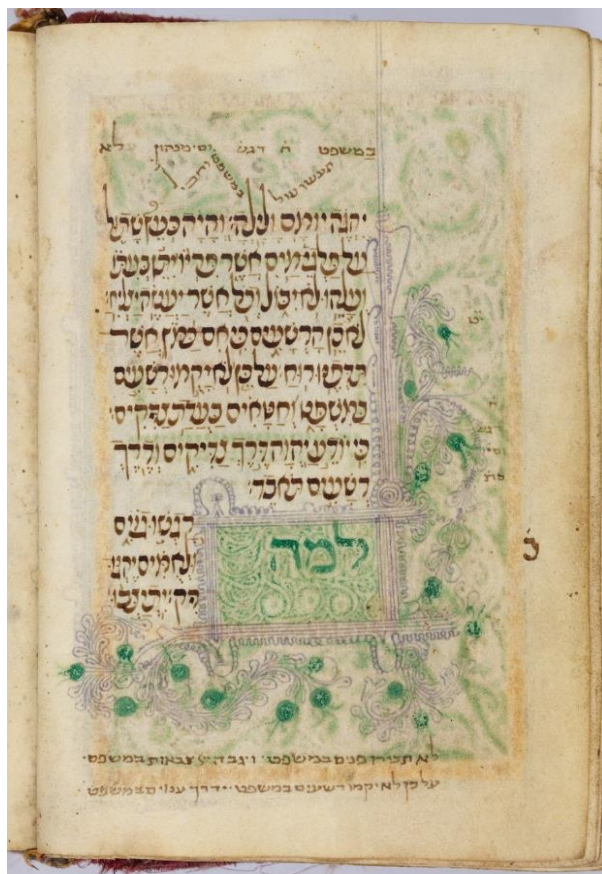 במשפט ה דגש וסימנהון לא
תעשו עול במשפט
יֶהְגֶּה יוֹמָם וָלָיְלָה׃ וְהָיָה כְּעֵץ שָׁתוּל
עַל פַּלְגֵי מָיִם אֲשֶׁר פִּרְיוֹ יִתֵּן בְּעִתּוֹ
וְעָלֵהוּ לֹא יִבּוֹל וְכֹל אֲשֶׁר יַעֲשֶׂה יַצְלִיחַ׃
לֹא כֵן הָרְשָׁעִים כִּי אִם כַּמֹּץ אֲשֶׁר
תִּדְּפֶנּוּ רוּחַ׃ עַל כֵּן לֹא יָקֻמוּ רְשָׁעִים
בַּמִּשְׁפָּט וְחַטָּאִים בַּעֲדַת צַדִּיקִים׃
כִּי יוֹדֵעַ יְהוָה דֶּרֶךְ צַדִּיקִים וְדֶרֶךְ
רְשָׁעִים תֹּאבֵד׃
למה
רָגְשׁוּ גוֹיִם
וּלְאֻמִּים יֶהְגּוּ
רִיק׃ יִתְיַצְּבוּ
לא תכירו פנים במשפט · ויגבה יי צבאות במשפט ·
על כן לא יקמו רשעים במשפט · ידרך ענוים במשפט ·